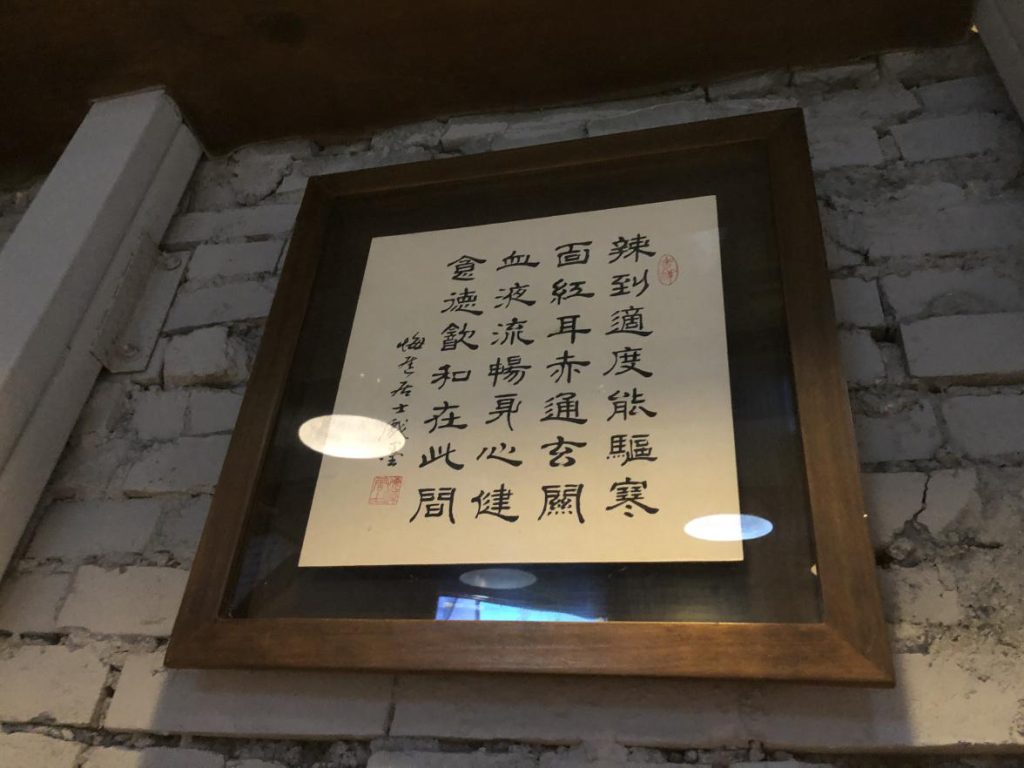 辣到適度能驅寒
面紅耳赤通玄關
血液流暢身心健
食德飲和在此間
居士戲墨